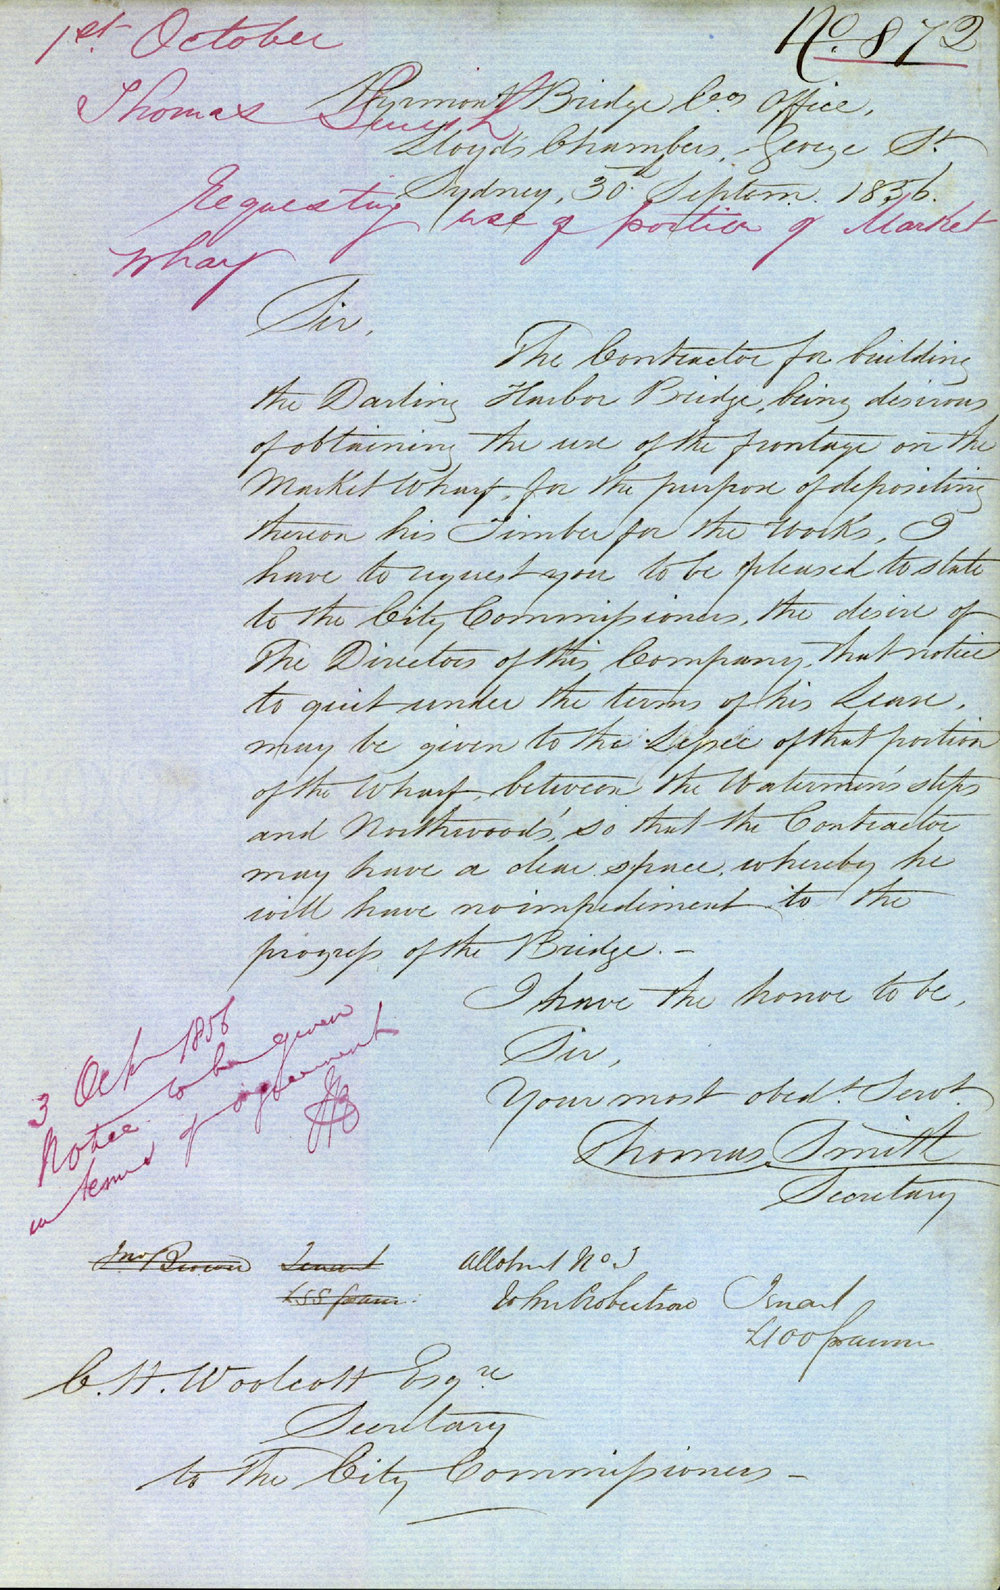 1st. October
No. 872
Pyrmont Bridge Co's Office,
Thomas Smith
Lloyds Chambers, George St.
Sydney, 30th Septem. 1856.
requesting use of portion of Market
Wharf
Sir,
The Contractor for building
the Darling Harbor Bridge, being desirous
of obtaining the use of the frontage on the
Market Wharf, for the purpose of depositing
thereon his Timber for the works, I
have to request you to be pleased to state
to the City Commissioners, the desire of
The Directors of this Company, that notice
to quit under the terms of his Lease,
may be given to the Lessee of that portion
of the Wharf, between the Watermen's steps
and Northwood's, so that the Contractor
may have a clear space, whereby he
will have no impediment to the
progress of the Bridge. –
I have the honor to be,
Sir,
Your most obedt. Servt.
Thomas Smith
Secretary
3 Oct 1856
Notice to be given
in terms of agreement
Jno Brown Tenant
£55 p ann.
Allotmt No. 3
John Robertson Tenant
£100 p annum
C. H. Woolcott Esqre
Secretary
to The City Commissioners –